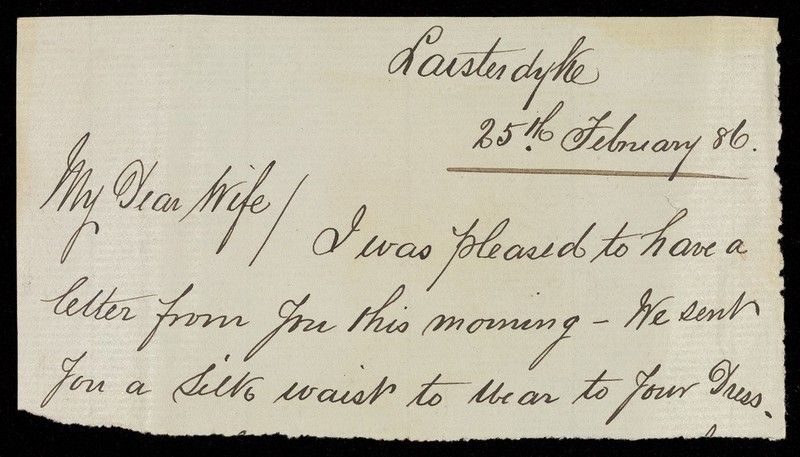 Laisterdyke
25th. February 86.
My Dear Wife / I was pleased to have a
letter from you this morning - We sent
you a Silk waist to wear to your Dress.